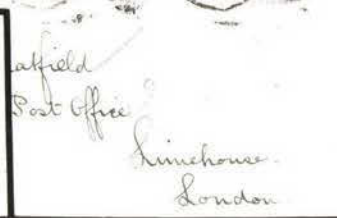 atfield
Post Office
Limehouse.
London